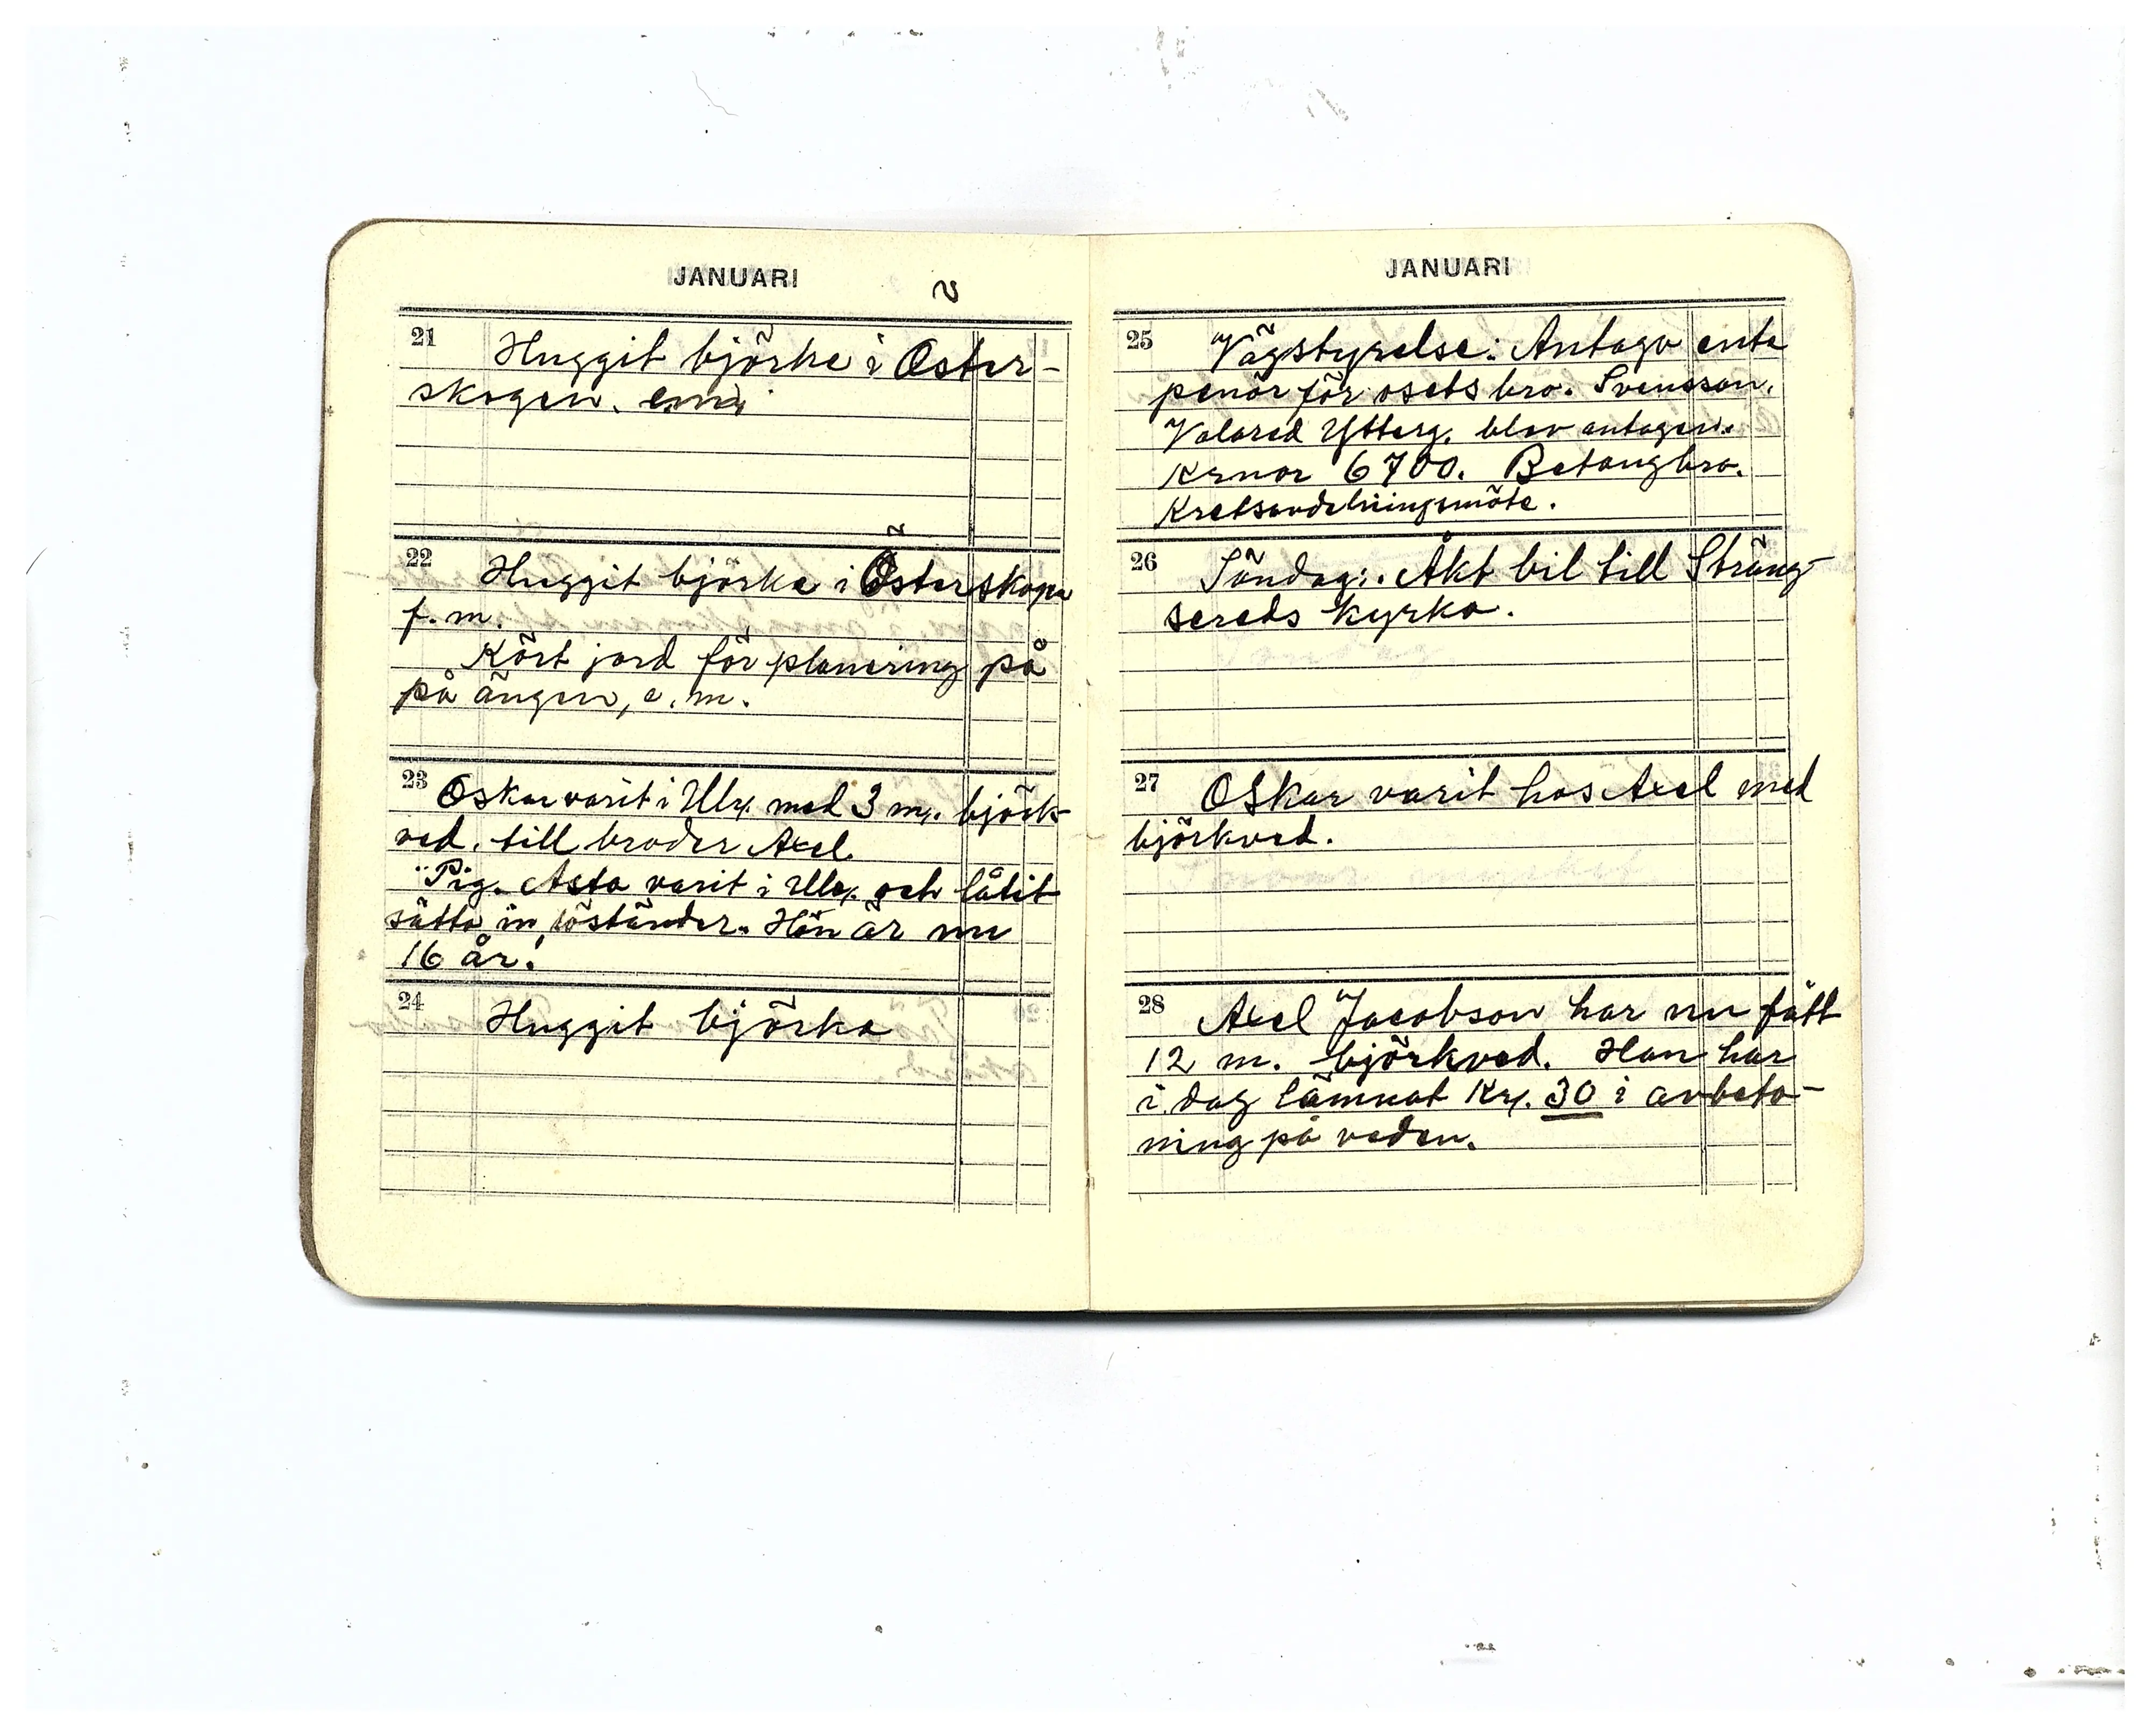 JANUARI
21 Huggit björke i Öster-
skogen.
22 Huggit björke i Österskogen
f. m.
Kört jord för planering på
på ängen, e. m.
23 Oskar varit i Ulr. med 3 m. björk
ved. till broder Axel.
Pig. Asta varit i Ulr. och låtit
sätta in löständer. Hon är nu
16 år!
24 Huggit björka
JANUARI
25 Vägstyrelse: Antago ente
penör för osets bro. Svensson.
Valared Ytterg. blev antagen.
Krnor 6700. Betongbro.
Kretsavdelningsmöte.
26 Söndag:. Åkt bil till Sträng-
sereds kyrka.
27 Oskar varit hos Axel med
björkved.
28 Axel Jacobson har nu fått
12 m. björkved. Han har
i dag lämnat Kr. 30 i avbeta-
ning på veden.